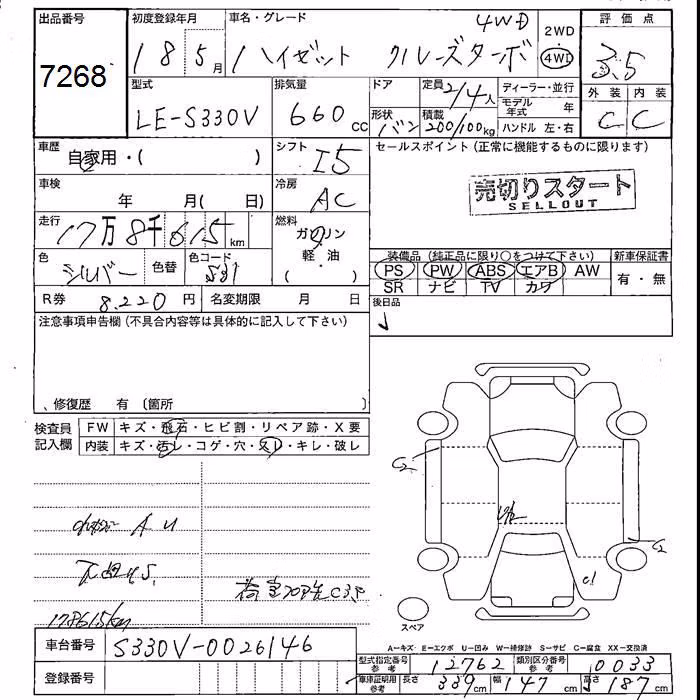 出品番号 初度登録年月 車名・グレード 4WD 2WD 評価点
7268 18年5月 ハイゼット クルーズターボ 4WD 3.5
型式 排気量 ドア 定員 2/4人 ディーラー・並行 外装 内装
LE-S330V 660cc 形状 バン 積載 200/100kg モデル年式 年 C C
ハンドル 左・右
車歴 自家用・( ) シフト I5 セールスポイント(正常に機能するものに限ります)
車検 年 月( 日) 冷房 AC 売切りスタート
SELLOUT
走行 17万8千615km 燃料 ガソリン
軽・油
装備品(純正品に限り○をつけて下さい) 新車保証書
色 シルバー 色替 色コード S31 PS PW ABS エアB AW 有・無
SR ナビ TV カワ
R券 8.220円 名変期限 月 日 後日品
注意事項申告欄(不具合内容等は具体的に記入して下さい)
修復歴 有(箇所 )
検査員記入欄 FW キズ・飛石・ヒビ割・リペア跡・X要
内装 キズ・汚レ・コゲ・穴・スレ・キレ・破レ
C2
C2
C1
A U
C35
178615km
スペア
車台番号 S330V-0026146
A―キズ E―エクボ U―凹み W―補修跡 S―サビ C―腐食 XX―交換済
型式指定番号 参考 12762 類別区分番号 参考 0033
登録番号 車庫証明用 参考 長さ 339cm 幅 147cm 高さ 187cm